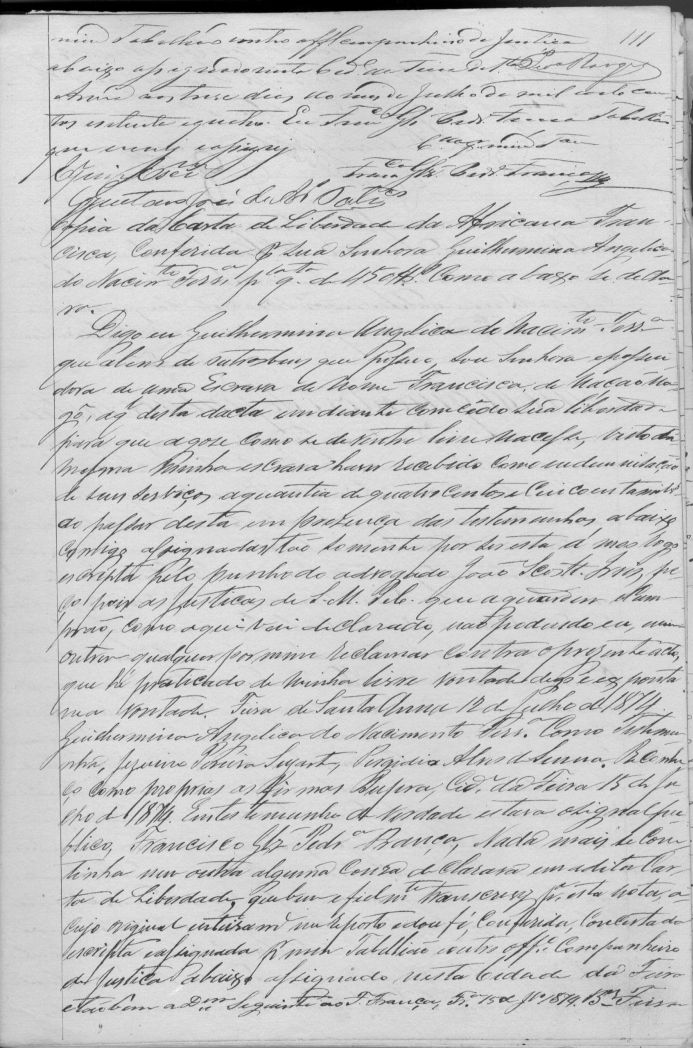 mim Tabellião e outro off.al Companheiro de Justiça 111
abaixo assignado nesta Cid.e da Feira de S.ta
Anna aos trese dias do mes de Julho de mil oito cen
tos e setenta e quatro. Eu Fran.co Glz Pedr.a França Tabellião
que escrevi e assignei
Fran.co Glz Pedr.a França
Gustavo José de
Copia da Carta de Liberdade da Africana Fran-
cisca, Conferida p. Sua Senhora Guilhermina Angelica
do Nacim.to Ferr.a p.la q.ta de 450$ Como abaixo se decla
ra.
Digo eu Guilhermina Angelica do Nacim.to Ferr.a
que alem de outros bens que possuo, sou Senhora e possui
dora de uma Escrava de nome Francisca, de Nação Na
gô, a q. desta dacta em diante concêdo sua liberdade
para que a gose como se de ventre livre nacesse, visto da
mesma minha escrava haver recebido como indemnisação
de seus serviços a quantia de quatrocentos e Cincoenta mil rs
ao passar desta em presença das testemunhas abaixo
comigo assignadas tão somente por ser esta á meu rogo
escripta pelo punho do advogado João pe
ço pois as Justiças de S. M. I. que a guardem e Cum-
prão, como aqui vai declarado, não podendo eu, nem
outro qualquer por mim reclamar contra o presente acto,
que hé praticado de minha livre vontade e expontâ
nea vontade. Feira de Santa Anna 12 de Julho de 1874.
Guilhermina Angelica do Nacimento Ferr.a Como Testemu
nha, Pereira Alves de Senna. Reconhe
ço como proprias as firmas Cid.e da Feira 15 de Ju
lho de 1874. Em testemunho de verdade estava o signal pu
blico, Francisco Glz Pedr.a França, Nada mais se Con
tinha nem outra alguma Couza declarava em a dita Car
ta de Liberdade, que bem e fiel m.te transcrevi p.a esta nota, a
cujo original me reporto e dou fé, Conferida, Concertada
escripta e assignada p. mim Tabellião e outro off.al Companheiro
de Justiça abaixo assignado, nesta Cidade da Feira
Seguinte ao T. França, F.a 15 de J.lo 1874.